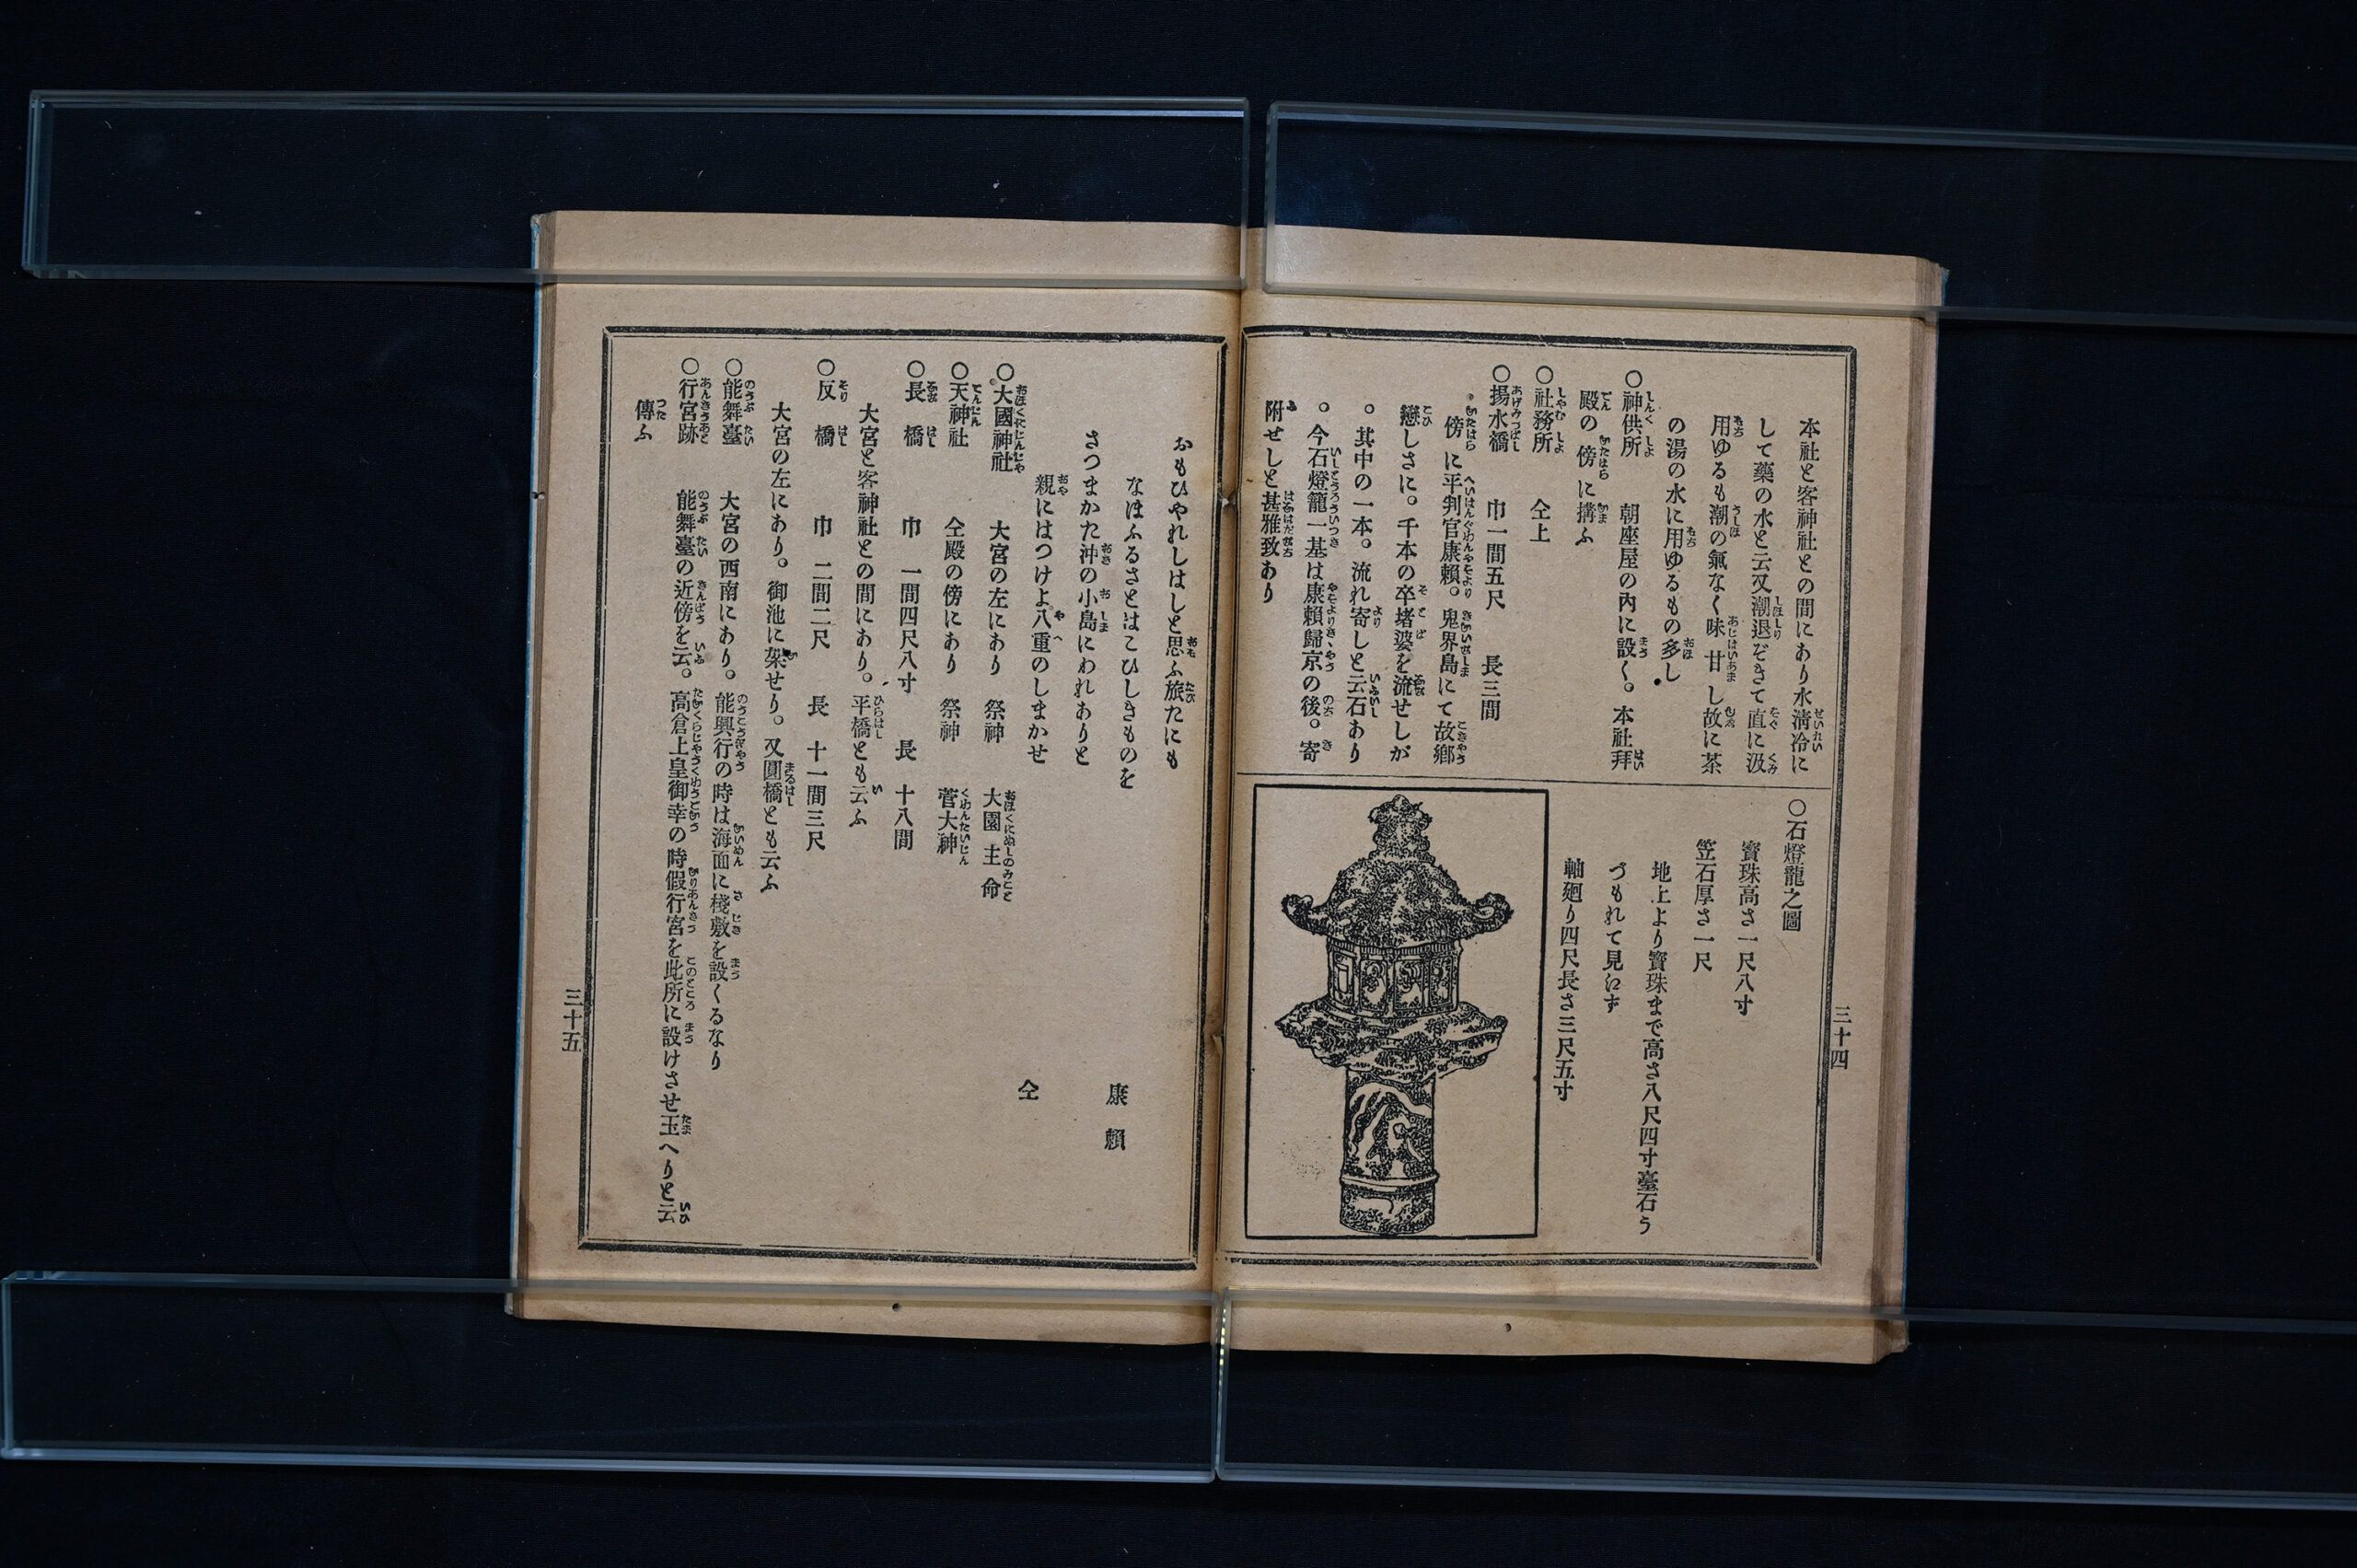 三十四
本社と客神社との間にあり水淸冷に
して藥の水と云又潮退ぞきて直に汲
用ゆるも潮の氣なく味甘し故に茶
の湯の水に用ゆるもの多し
○神供所　朝座屋の內に設く。本社拜
殿の傍に搆ふ
○社務所　仝上
○揚水橋　巾一間五尺　長三間
傍に平判官康賴。鬼界島にて故鄕
戀しさに。千本の卒堵婆を流せしが
。其中の一本。流れ寄しと云石あり
。今石燈籠一基は康賴歸京の後。寄
附せしと甚雅致あり
○石燈籠之圖
寶珠高さ一尺八寸
笠石厚さ一尺
地上より寶珠まで高さ八尺四寸臺石う
づもれて見えず
軸廻り四尺長さ三尺五寸
おもひやれしはしと思ふ旅たにも
なほふるさとはこひしきものを
康賴
さつまかた沖の小島にわれありと
親にはつけよ八重のしまかせ
仝
○大國神社　大宮の左にあり　祭神　大園主命
○天神社　仝殿の傍にあり　祭神　菅大神
○長橋　巾　一間四尺八寸　長　十八間
大宮と客神社との間にあり。平橋とも云ふ
○反橋　巾　二間二尺　長　十一間三尺
大宮の左にあり。御池に架せり。又圓橋とも云ふ
○能舞臺　大宮の西南にあり。能興行の時は海面に棧敷を設くるなり
○行宮跡　能舞臺の近傍を云。高倉上皇御幸の時假行宮を此所に設けさせ玉へりと云
傳ふ
三十五